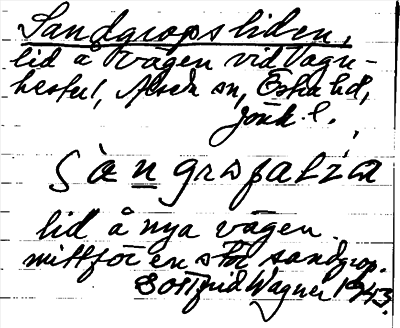 Sandgropsliden,
lid å vägen vid Vagn-
hester, Alseda sn, Östra hd,
Jönk. l.
Sàngrɷpalìa
lid å nya vägen.
mittför en stor sandgrop.
Gottfrid Wagner 1943.